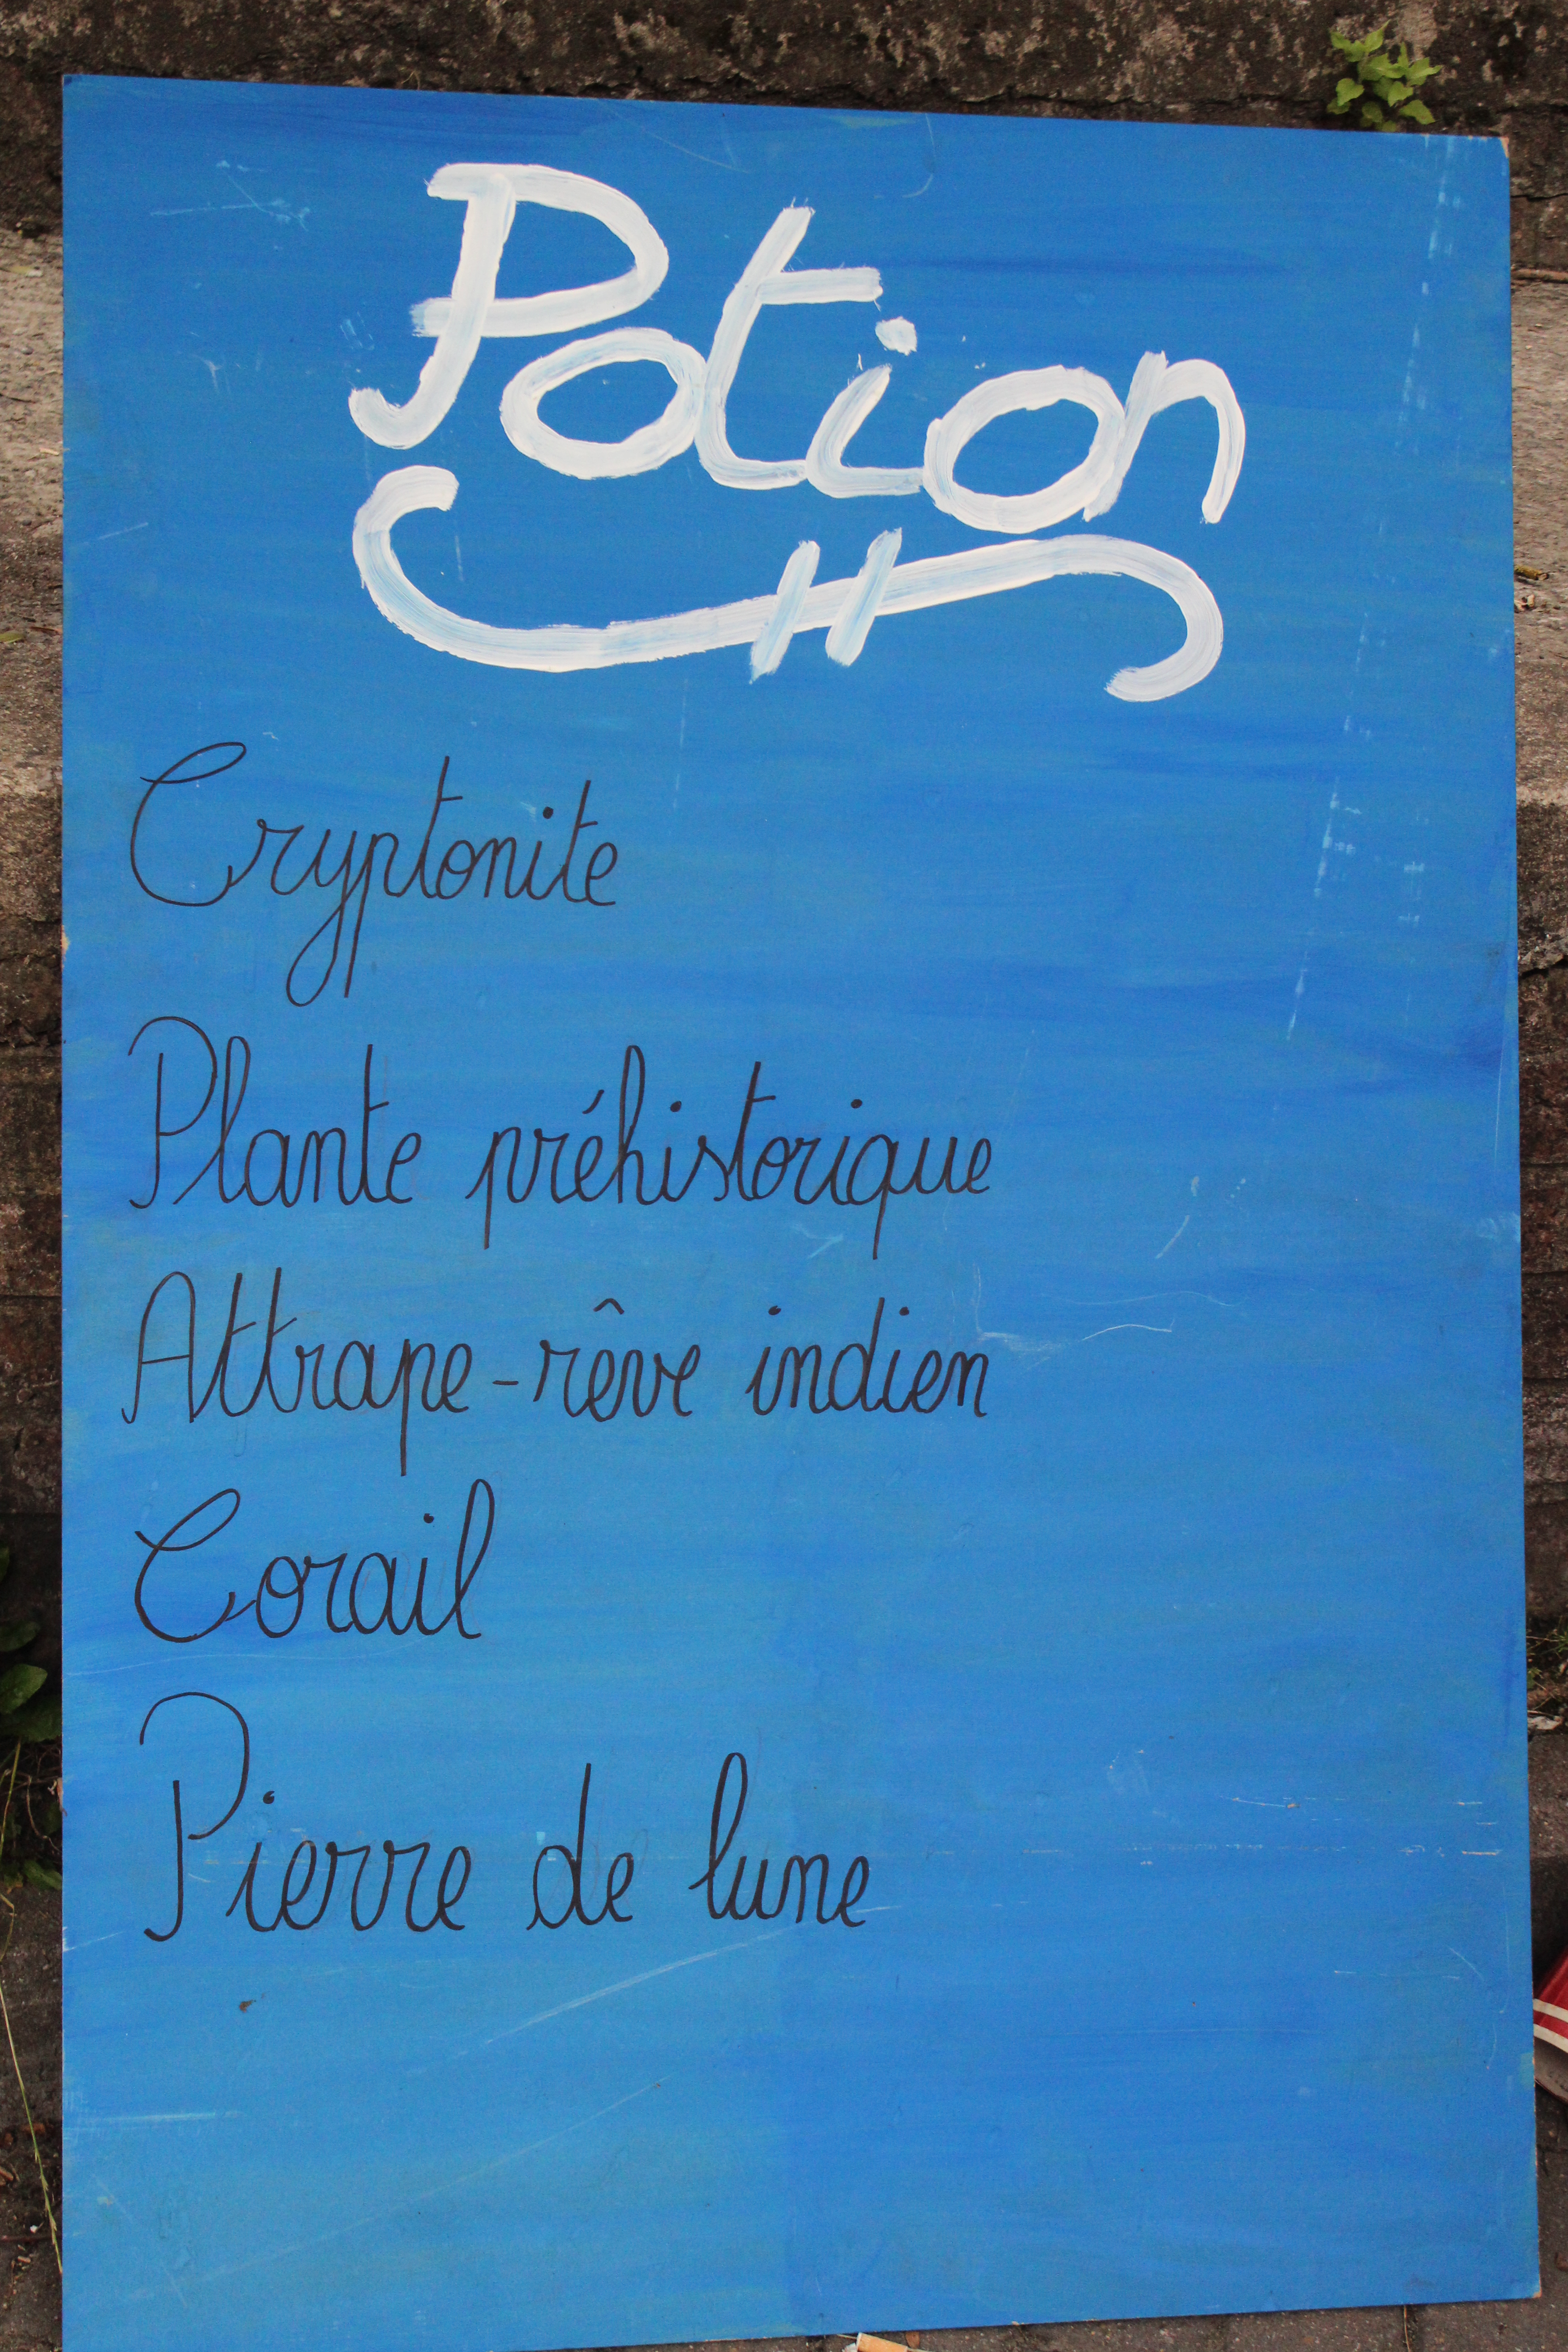 Potion
Cryptonite
Plante préhistorique
Attrape-rêve indien
Corail
Pierre de lune